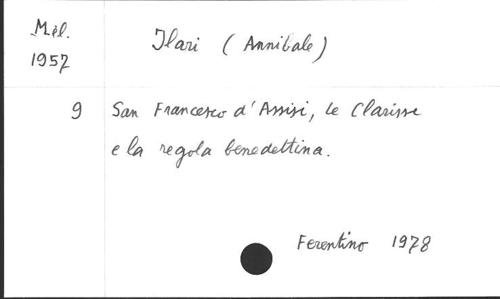 Mél.
1957
Ilari (Annibale)
9 San Francesco d'Assisi, le Clarisse
e la regola benedettina.
Ferentino 1978